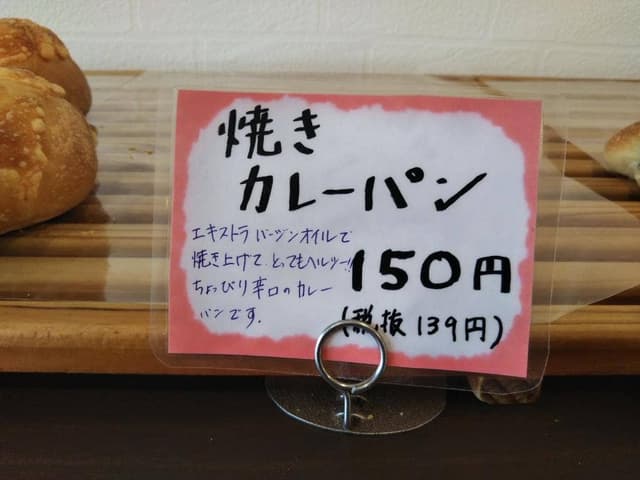 焼き
カレーパン
エキストラバージンオイルで
焼き上げて とってもヘルシー!!
ちょっぴり辛口のカレー
パンです.
150円
(税抜139円)